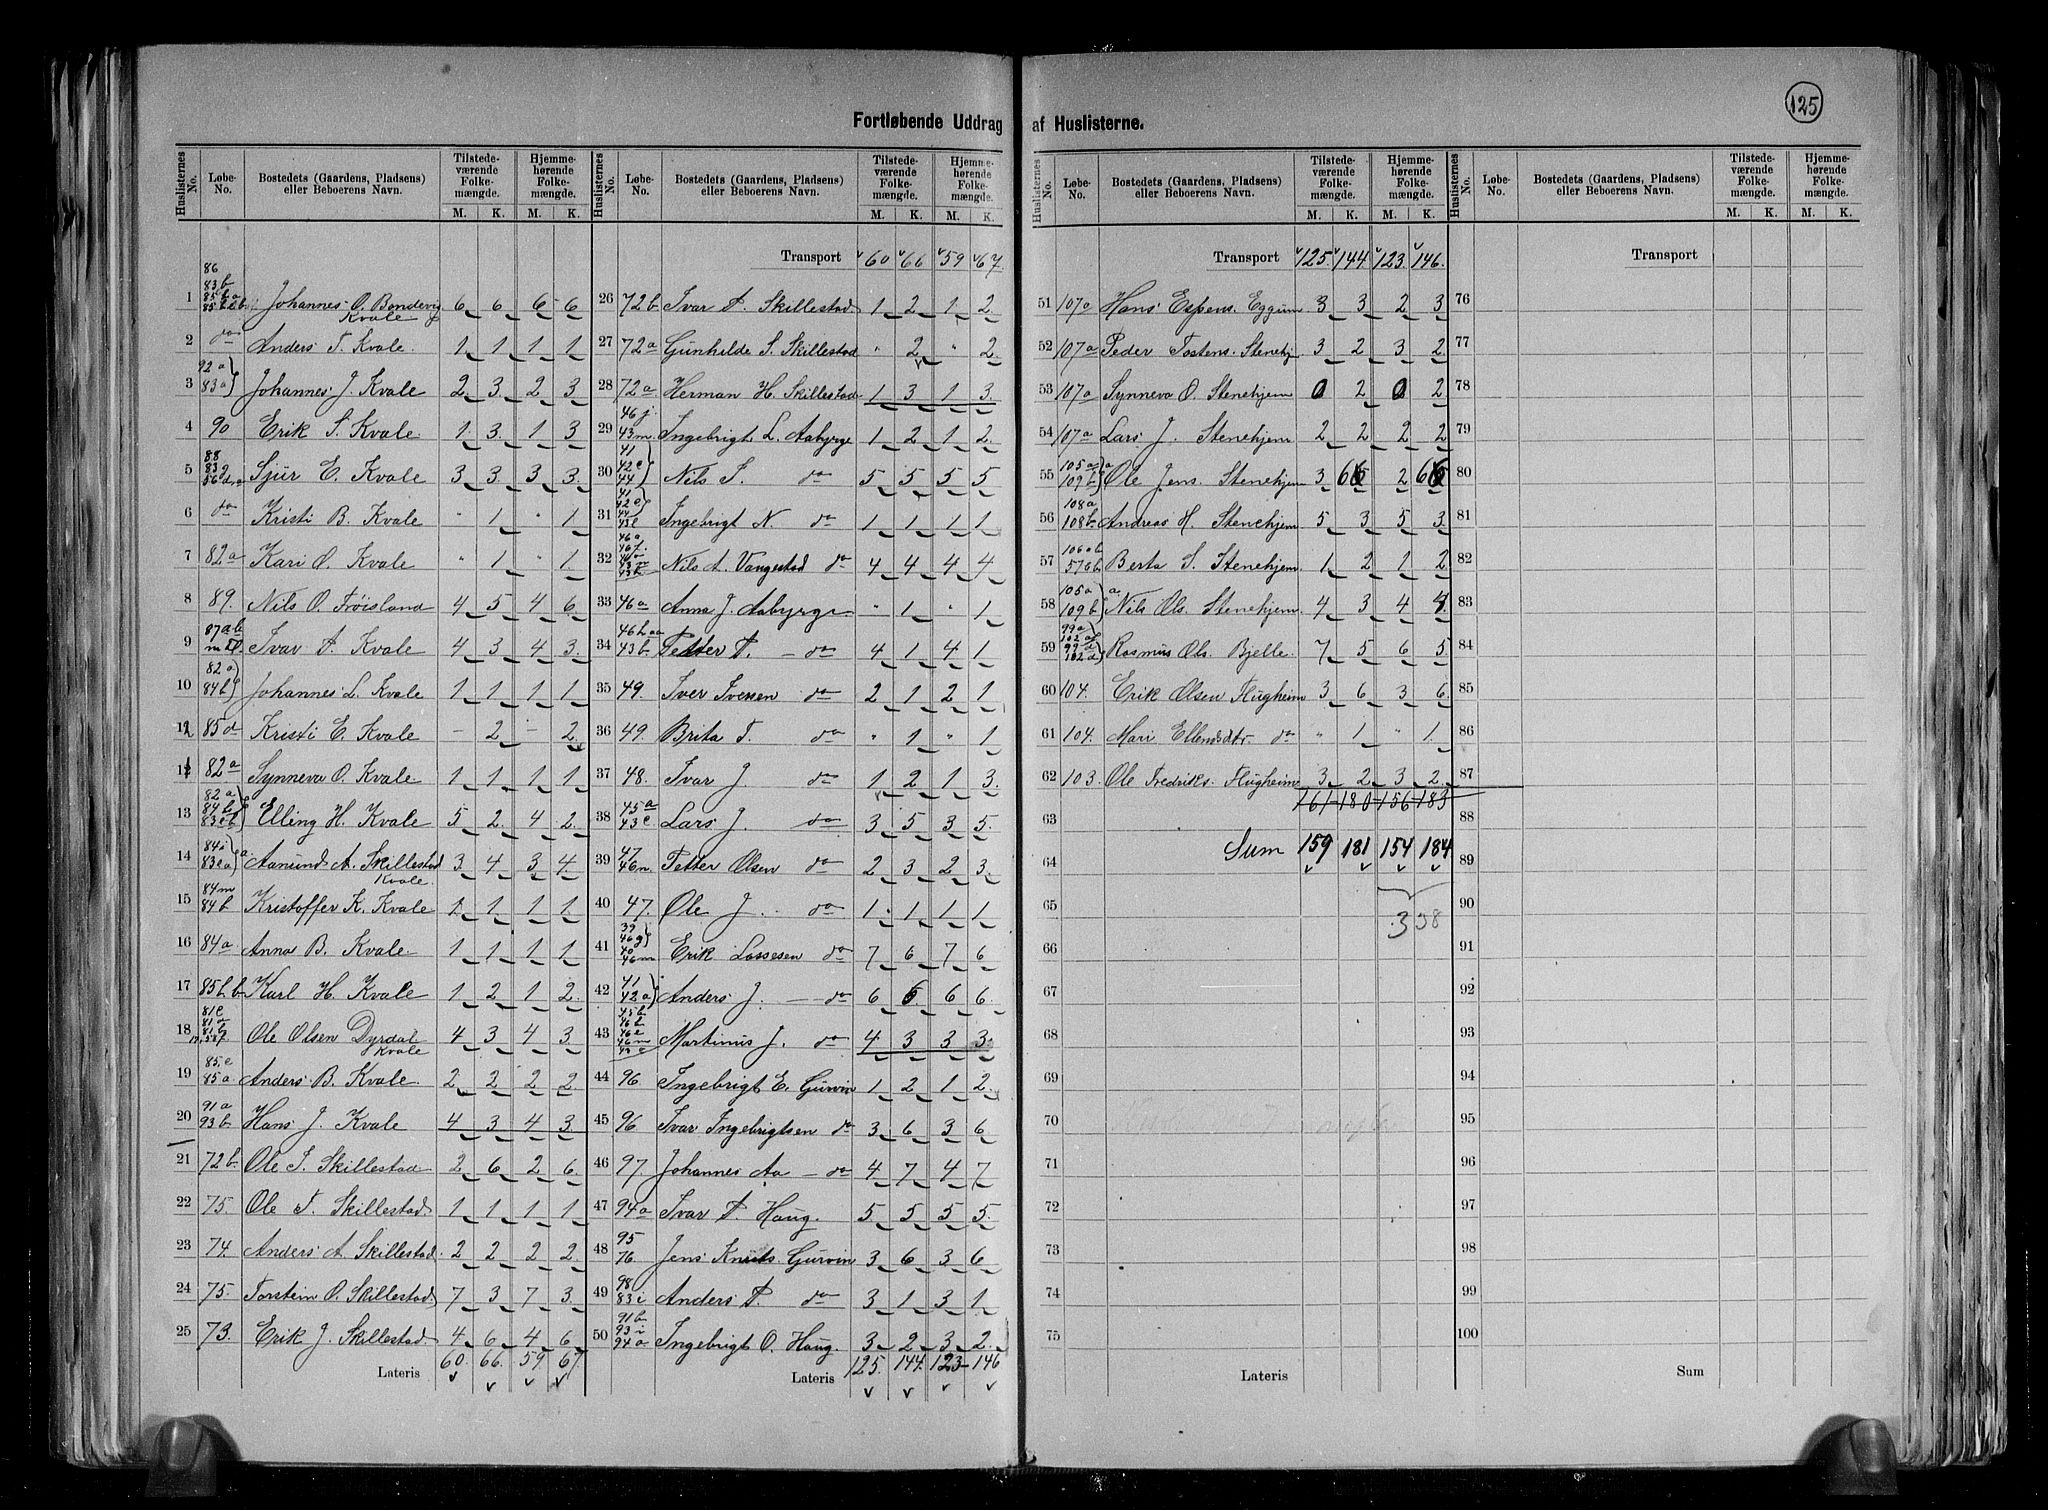 125
Fortløbende Uddrag af Huslisterne.
Huslisternes No. Løbe-No. Bostedets (Gaardens, Pladsens) eller Beboerens Navn. Tilstedeværende Folkemængde. M. K. Hjemmehørende Folkemængde. M. K.
1 86 83b 85ba Johannes O. Bondevig Kvale 6 6 6 6
2 do Anders T. Kvale. 1 1 1 1
3 92a 83a Johannes J. Kvale 2 3 2 3
4 90 Erik S. Kvale 1 3 1 3
5 88 83g Sjur E. Kvale 3 3 3 3
6 do Kristi B. Kvale " 1 " 1
7 82a Kari O. Kvale " 1 " 1
8 89. Nils O. Frøisland 4 5 4 6
9 87ab Ivar A. Kvale 4 3 4 3
10 82a 84b Johannes L. Kvale 1 1 1 1
12 85d Kristi E. Kvale - 2 - 2
11 82a Synneva O. Kvale 1 1 1 1
13 82a 84b Elling H. Kvale 5 2 4 2
14 84i 83ea Aamund A. Skillestad Kvale. 3 4 3 4
15 84m 84b Kristoffer K. Kvale 1 1 1 1
16 84a Anna B. Kvale 1 1 1 1
17 85bb Karl H. Kvale 1 2 1 2
18 81e 81a 81b Ole Olsen Dyrdal Kvale 4 3 4 3
19 85.e 85a Anders B. Kvale 2 2 2 2
20 91a 93b Hans J. Kvale 4 3 4 3
21 72b Ole I. Skillestad 2 6 2 6
22 75. Ole T. Skillestad 1 1 1 1
23 74. Anders A. Skillestad 2 2 2 2
24 75. Torstein O. Skillestad 7 3 7 3
25 73. Erik J. Skillestad 4 6 4 6
Lateris 60. 66. 59. 67
Huslisternes No. Løbe-No. Bostedets (Gaardens, Pladsens) eller Beboerens Navn. Tilstedeværende Folkemængde. M. K. Hjemmehørende Folkemængde. M. K.
Transport 60 66 59 67.
26 72b Ivar A. Skillestad 1 2 1 2
27 72a Gunhilde S. Skillestad " 2 " 2
28 72a Herman H. Skillestad 1 3 1 3
29 46j 43m Ingebrigt L. Aabyrge 1 2 1 2
30 41 42e 44 Nils I. do 5 5 5 5
31 41 42e 44 43l Ingebrigt N. do 1 1 1 1
32 46a Nils A. Vangestad do 4 4 4 4
33 46a Anna J. Aabyrge " 1 " 1
34 46b 43b Petter A. - do 4 1 4 1
35 49. Iver Iversen do 2 1 2 1
36 49. Brita T. do " 1 " 1
37 48. Ivar J. do 1 2 1 3
38 45a 43c Lars J. do 3 5 3 5
39 47 46n. Petter Olsen do 2 3 2 3
40 47. Ole J. do 1 1 1 1
41 39 46g 46m Erik Lassesen do 7 6 7 6
42 41 42a Anders J. - do 6 6 6 6
43 45b 46b 46e 46m Martinus J. do 4 3 3 3
44 96. Ingebrigt E. Gurvin 1 2 1 2
45 96 Ivar Ingebrigtsen do 3 6 3 6
46 97. Johannes Aa - do 4 7 4 7
47 94a Ivar A. Haug. 5 5 5 5
48 95 76 Jens Knuts. Gurvin 3 6 3 6
49 98 83i Anders A. do 3 1 3 1
50 91b 93i 94a Ingebrigt O. Haug. 3 2 3 2
Lateris 125. 144. 123 146
Huslisternes No. Løbe-No. Bostedets (Gaardens, Pladsens) eller Beboerens Navn. Tilstedeværende Folkemængde. M. K. Hjemmehørende Folkemængde. M. K.
Transport 125. 144 123. 146.
51 107a Hans Espens. Eggum 3 3 2 3
52 107a Peder Tostens. Stenehj 3 2 3 2
53 107a Synneva O. Stenehjem 0 2 0 2
54 107a Lars J. Stenehjem 2 2 2 2
55 105a 109b Ole Jens. Stenehjem 3 6 2 6
56 108a 108b Andreas H. Stenehjem 5 3 5 3
57 106ab Berta S. Stenehjem 1 2 1 2
58 105a 109b Nils Ols. Stenehjem 4 3 4 4
59 99a 102a 99d 102d Rasmus Ols. Bjelle. 7 5 6 5
60 104. Erik Olsen Flugheim 3 6 3 6
61 104. Mari Ellendsdtr. do " 1 " 1
62 103. Ole Fredriks. Flugheim 3 2 3 2
161 180 156 183
63
64 Sum 159 181 154 184
65 338
66
67
68
69
70
71
72
73
74
75
Lateris
Huslisternes No. Løbe-No. Bostedets (Gaardens, Pladsens) eller Beboerens Navn. Tilstedeværende Folkemængde. M. K. Hjemmehørende Folkemængde. M. K.
Transport
76
77
78
79
80
81
82
83
84
85
86
87
88
89
90
91
92
93
94
95
96
97
98
99
100
Sum